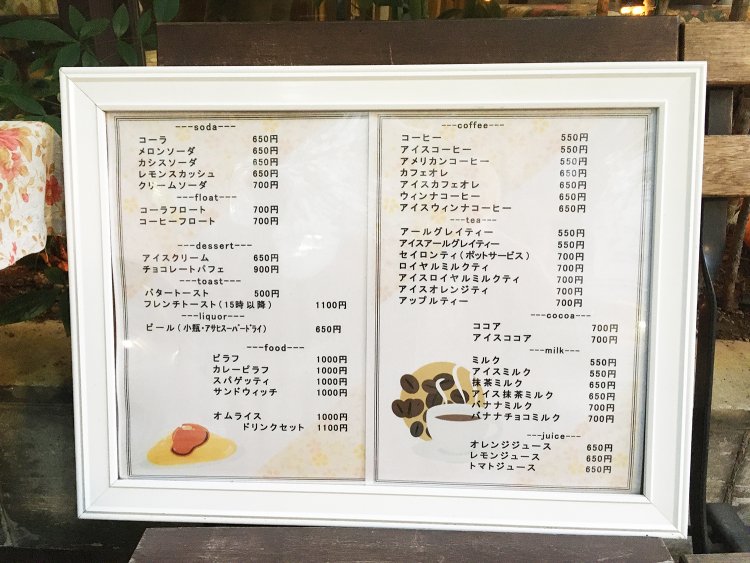 ---soda---
コーラ 650円
メロンソーダ 650円
カシスソーダ 650円
レモンスカッシュ 650円
クリームソーダ 700円
---float---
コーラフロート 700円
コーヒーフロート 700円
---dessert---
アイスクリーム 650円
チョコレートパフェ 900円
---toast---
バタートースト 500円
フレンチトースト(15時以降) 1100円
---liquor---
ビール(小瓶・アサヒスーパードライ) 650円
---food---
ピラフ 1000円
カレーピラフ 1000円
スパゲッティ 1000円
サンドウィッチ 1000円
オムライス 1000円
ドリンクセット 1100円
---coffee---
コーヒー 550円
アイスコーヒー 550円
アメリカンコーヒー 550円
カフェオレ 650円
アイスカフェオレ 650円
ウィンナコーヒー 650円
アイスウィンナコーヒー 650円
---tea---
アールグレイティー 550円
アイスアールグレイティー 550円
セイロンティ(ポットサービス) 700円
ロイヤルミルクティ 700円
アイスロイヤルミルクティ 700円
アイスオレンジティ 700円
アップルティー 700円
---cocoa---
ココア 700円
アイスココア 700円
---milk---
ミルク 550円
アイスミルク 550円
抹茶ミルク 650円
アイス抹茶ミルク 650円
バナナミルク 700円
バナナチョコミルク 700円
---juice---
オレンジジュース 650円
レモンジュース 650円
トマトジュース 650円